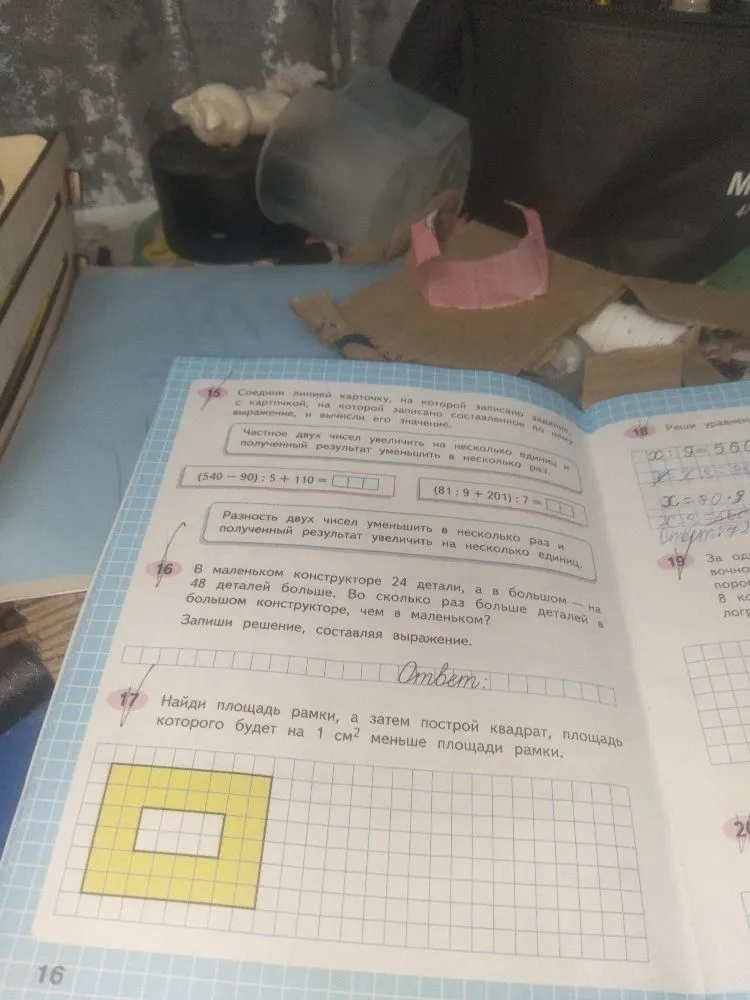 15 Соедини линией карточку, на которой записано задание,
с карточкой, на которой записано составленное по нему
выражение, и вычисли его значение.
Частное двух чисел увеличить на несколько единиц и
полученный результат уменьшить в несколько раз.
(540 − 90) : 5 + 110 =
(81 : 9 + 201) : 7 =
Разность двух чисел уменьшить в несколько раз и
полученный результат увеличить на несколько единиц.
16 В маленьком конструкторе 24 детали, а в большом — на
48 деталей больше. Во сколько раз больше деталей в
большом конструкторе, чем в маленьком?
Запиши решение, составляя выражение.
Ответ:
17 Найди площадь рамки, а затем построй квадрат, площадь
которого будет на 1 см² меньше площади рамки.
16
18 Реши
x : 9 =
x = 80 · 9
19 За
8
20
M